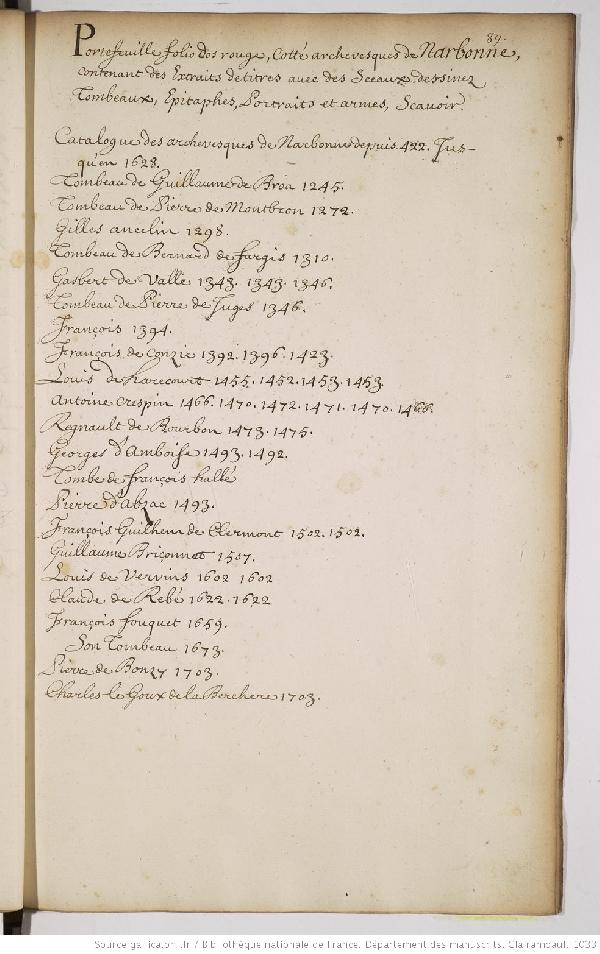 89.
Portefeuille folio dos rouge, Cotté archevesques de Narbonne,
contenant des Extraits de titres avec des Sceaux dessinez
Tombeaux, Epitaphes, Portraits et armes, Scavoir
Catalogue des archevesques de Narbonne depuis 422. Jus-
qu'en 1628.
Tombeau de Guillaume de Broa 1245.
Tombeau de Pierre de Montbron 1272.
Gilles ancelin 1298.
Tombeau de Bernard de fargis 1310.
Gasbert de Valle 1343. 1343. 1346.
Tombeau de Pierre de Juges 1346.
François 1394.
François de Conzie 1392. 1396. 1423.
Louis de harecourt 1455. 1452. 1453. 1453.
Antoine Crespin 1466. 1470. 1472. 1471. 1470. 1466.
Regnault de Bourbon 1473. 1475.
Georges d'Amboise 1493. 1492.
Tombe de françois hallé
Pierre d'abzac 1493.
François Guilhem de Clermont 1502. 1502.
Guillaume Briçonnet 1507.
Louis de Vervins 1602 1602
Claude de Rebé 1622. 1622
François fouquet 1659.
Son Tombeau 1673.
Pierre de Bonzy 1703.
Charles le Goux de la Berchere 1703.
Source gallica.bnf.fr / Bibliothèque nationale de France. Département des manuscrits. Clairambault. 1033